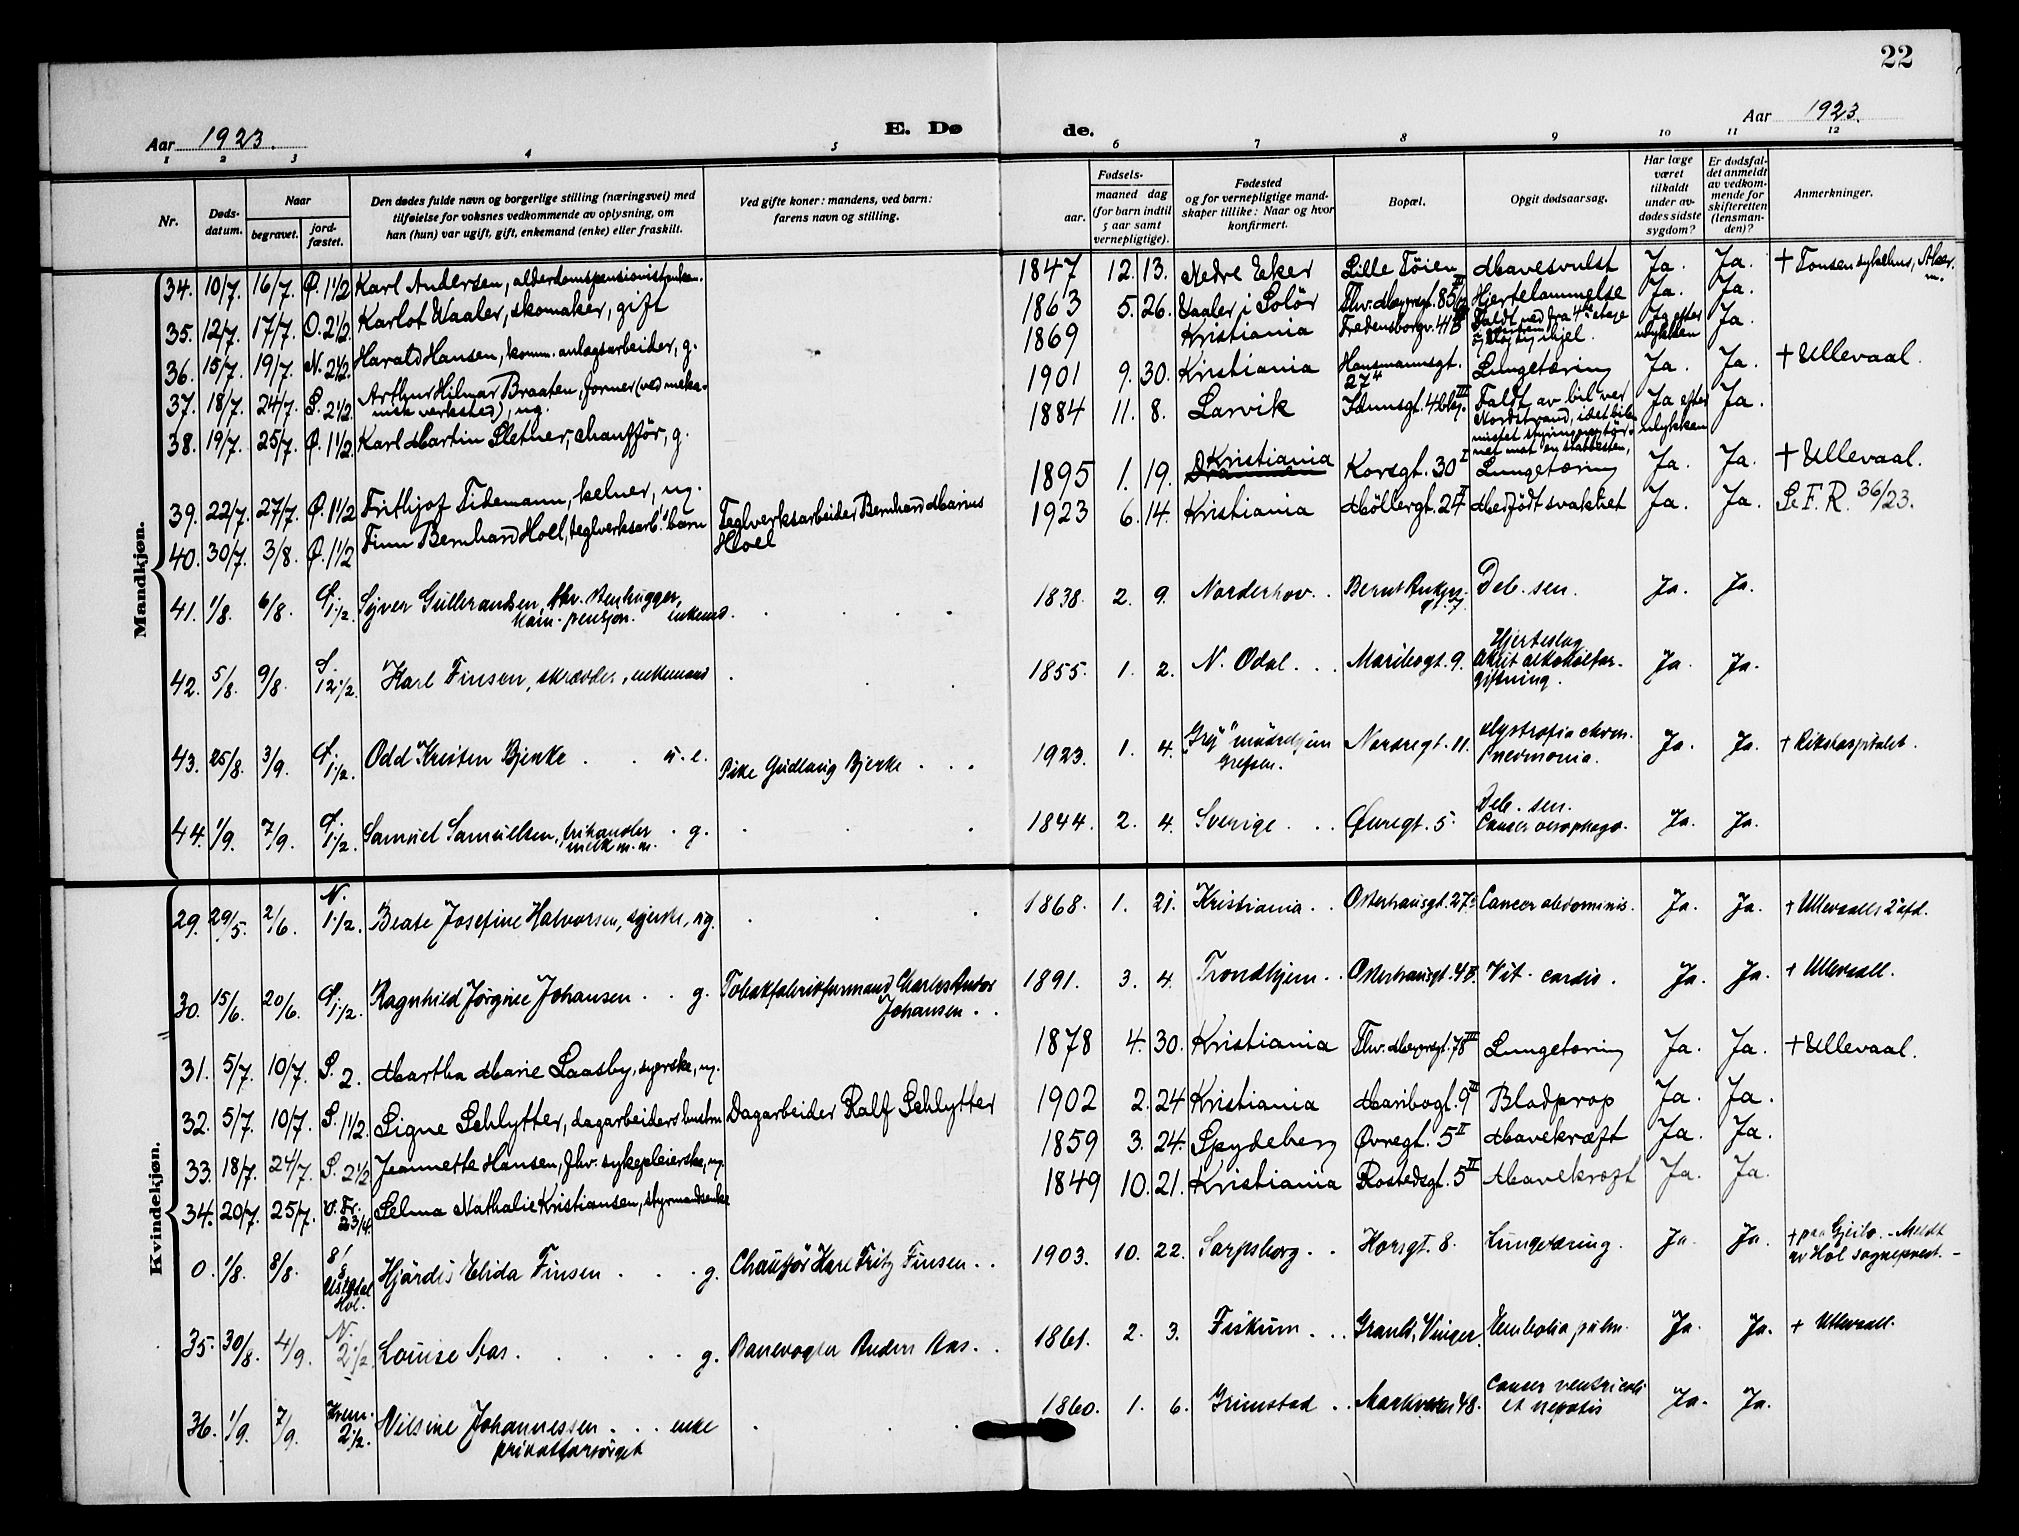 22
Aar 1923.
E. Dø
de.
Aar 1923.
1 2 3 4 5 6 7 8 9 10 11 12
Nr.
Døds-
datum.
Naar
begravet.
jord-
fæstet.
Den dødes fulde navn og borgerlige stilling (næringsvei) med
tilføielse for voksnes vedkommende av oplysning, om
han (hun) var ugift, gift, enkemand (enke) eller fraskilt.
Ved gifte koner: mandens, ved barn:
farens navn og stilling.
Fødsels-
aar.
maaned dag
(for barn indtil
5 aar samt
vernepligtige).
Fødested
og for vernepligtige mand-
skaper tillike: Naar og hvor
konfirmert.
Bopæl.
Opgit dødsaarsag.
Har læge
været
tilkaldt
under av-
dødes sidste
sygdom?
Er dødsfal-
det anmeldt
av vedkom-
mende for
skifteretten
(lensman-
den)?
Anmerkninger.
Mandkjøn.
34. 10/7. 16/7. Ø. 1 1/2 Karl Andersen, alderdomspensionist, enkem. 1847 12. 13. Nedre Eker Lille Töien Mavesvulst Ja. Ja. + Tonsen sykehus, Aker.
35. 12/7. 17/7. O. 2 1/2. Karlot Vaaler, skomaker, gift 1863 5. 26. Vaaler i Solör Thv. Meyersgt. 85 Hjertelammelse Ja. Ja.
36. 15/7. 19/7. N. 2 1/2. Harald Hansen, komm. anlægsarbeider, g. 1869 Kristiania Fredensborgv. 41 Faldt ned fra 4de etage
og slog sig ihjel. Ja efter
ulykken Ja.
37. 18/7. 24/7. S. 2 1/2. Arthur Hilmar Braaten, former (ved meka-
nisk verksted), ug. 1901 9. 30. Kristiania Hausmannsgt.
27 Lungetæring Ja. Ja. + Ullevaal.
38. 19/7. 25/7. Ø. 1 1/2. Karl Martin Sletner, chaufför, g. 1884 11. 8. Larvik Idunsgt. 4 III Faldt av bil ved
Nordstrand, idet bilen
mistet styringen og tör-
net mot en stabbesten, Ja efter
ulykken Ja.
39. 22/7. 27/7. Ø. 1 1/2 Frithjof Tidemann, kelner, ug. 1895 1. 19. Kristiania Korsgt. 30 I Lungetæring Ja. Ja. + Ullevaal.
40. 30/7. 3/8. Ø. 1 1/2 Finn Bernhard Hoel, teglverksarb.' barn Teglverksarbeider Bernhard Marius
Hoel 1923 6. 14. Kristiania Möllergt. 24 I Medfödt svakhet Ja. Ja. Se F. R. 36/23.
41. 1/8. 6/8. Ø. 1 1/2. Syver Gulbrandsen, fhv. stenhugger,
kom. pensjon. enkemd. 1838. 2. 9. Norderhov. Bernt Ankers gt. Deb. sen. Ja. Ja.
42. 5/8. 9/8. S. 12 1/2. Karl Finsen, skrædder, enkemand 1855. 1. 2. N. Odal. Maribogt. 9. Hjerteslag
Akut alkoholfor-
giftning. Ja. Ja.
43. 25/8. 3/9. Ø. 1 1/2. Odd Kristen Bjerke. u. e. Pike Gudlaug Bjerke. 1923. 1. 4. Grefsen. Nordregt. 11. Dystrofia chron.
Pneumonia. Ja. Ja. + Rikshospitalet.
44. 1/9. 7/9. Ø. 1 1/2. Samuel Samuelsen, frihandler
melk m. m. g. 1844. 2. 4. Sverige. Øvregt. 5. Deb. sen.
Cancer oesophagi. Ja. Ja.
Kvindekjøn.
29. 29/5. 2/6. N. 1 1/2. Beate Josefine Halvorsen, syerske, ug. 1868. 1. 21. Kristiania. Osterhausgt. 27. Cancer abdominis. Ja. Ja. + Ullevaals 2 afd.
30. 15/6. 20/6. Ø. 1 1/2. Ragnhild Jørgine Johansen. g. Tobakfabrikformand Charles Andor
Johansen. 1891. 3. 4. Trondhjem. Osterhausgt. 4B. Vit. cordis. Ja. Ja. + Ullevaal.
31. 5/7. 10/7. S. 2. Martha Marie Laasby, syerske, ug. 1878 4. 30. Kristiania Thv. Meyersgt. 78 III Lungetæring Ja. Ja. + Ullevaal.
32. 5/7. 10/7. S. 1 1/2. Signe Schlytter, dagarbeiders hustru Dagarbeider Ralf Schlytter 1902 2. 24 Kristiania Maribogt. 9 II Blodprop Ja. Ja.
33. 18/7. 24/7. S. 2 1/2 Jeannette Hansen, fhv. sykepleierske, ug. 1859 3. 24. Spydeberg Øvregt. 5 II Mavekræft Ja. Ja.
34. 20/7. 25/7. V. Fr. 2 3/4. Selma Nathalie Kristiansen, styrmandsenke 1849 10. 21. Kristiania Rostedsgt. 5 II Mavekræft Ja. Ja.
0. 1/8. 8/8. 8/8
Ustedal
Hol. Hjördis Elida Finsen. g. Chauffør Karl Fritz Finsen. 1903. 10. 22. Sarpsborg. Korsgt. 8. Lungetæring. Ja. Ja. + paa Gjeilo. - Meldt
av Hol sogneprest. -
35. 30/8. 4/9. N. 2 1/2. Louise Aas. g. Banevogter Anders Aas. 1861. 2. 3. Fiskum. Granli, Vinger. Embolia pulm. Ja. Ja. + Ullevaal.
36. 1/9. 7/9. Krem. 2 1/2. Nilsine Johannessen. enke
privatforsörget 1860. 1. 6. Grimstad. Markveien 48. Cancer ventriculi
et hepatis Ja. Ja.